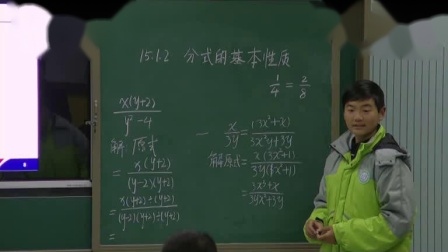 15.1.2 分式的基本性质
1/4 = 2/8
x(y+2)/y²-4
解:原式
= x(y+2)/(y-2)(y+2)
= x(y+2)÷(y+2)/(y-2)(y+2)÷(y+2)
=
x/3y = (3x³+x)/9x²y+3y
解:原式 = x(3x²+1)/3y(3x²+1)
= 3x³+x/9yx²+3y